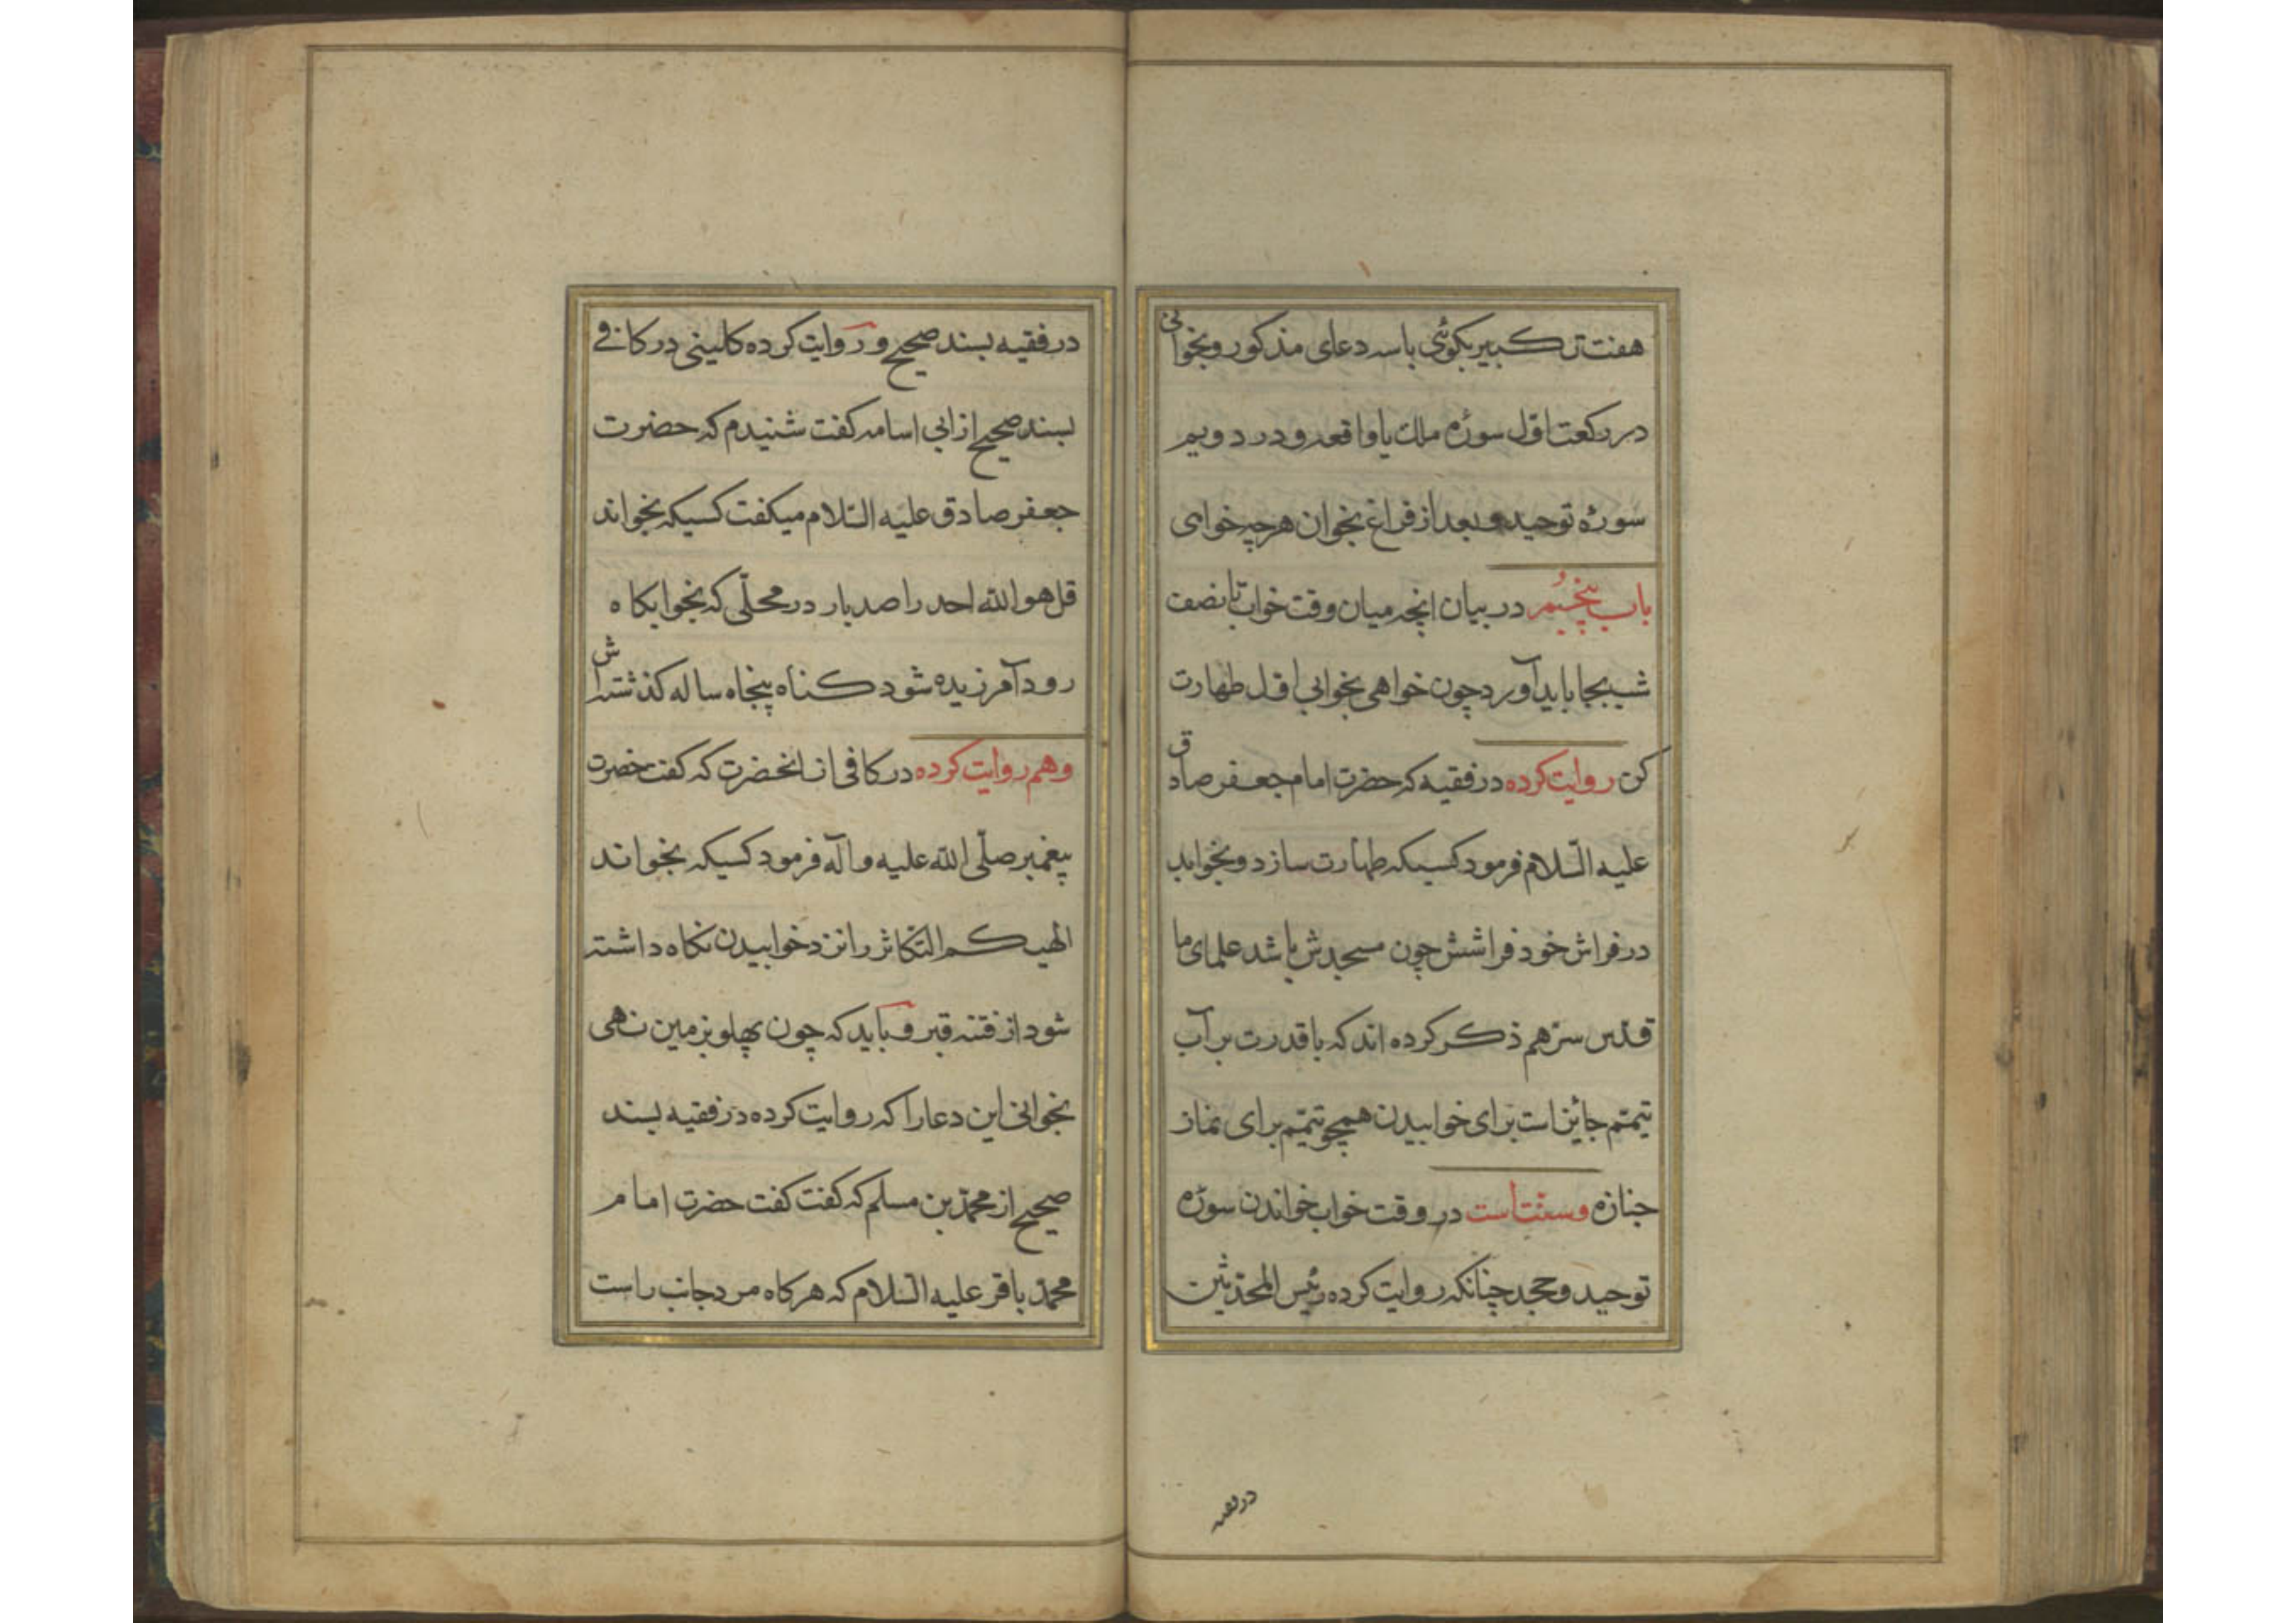 هفت تکبیر بکوئی با سه دعای مذکور و بخوانی
در رکعت اوّل سوره ملک یا واقعه و در دویم
سوره توحید و بعد از فراغ بخوان هر چه خوای
باب پنجُم در بیان انچه میان وقت خواب تا نصف
شب بجا باید آورد چون خواهی بخوابی اوّل طهارت
کن روایت کرده در فقیه که حضرت امام جعفر صادق
علیه السّلام فرمود کسیکه طهارت سازد و بخوابد
در فراش خود فراشش چون مسجدش باشد علمای ما
قدّس سرّهم ذکر کرده اند که با قدرت بر آب
تیمّم جائز است برای خوابیدن همچو تیمّم برای نماز
جنازه و سنّت است در وقت خواب خواندن سورٔه
توحید و جحد چنانکه روایت کرده رئیس المحدّثین
در فقیه
در فقیه بسند صحیح و روایت کرده کلینی در کافی
بسند صحیح از ابی اسامه کفت شنیدم که حضرت
جعفر صادق علیه السّلام میکفت کسیکه بخواند
قل هو الله احد را صد بار در محلّی که بخوابکاه
رود آمرزیده شود کناه پنجاه ساله کذشته‌اش
و هم روایت کرده در کافی از انحضرت که کفت حضرت
پیغمبر صلّی الله علیه و آله فرمود کسیکه بخواند
الهیکم التّکاثر را نزد خوابیدن نکاه داشته
شود از فتنه قبر و باید که چون پهلو بزمین نهی
بخوانی این دعا را که روایت کرده در فقیه بسند
صحیح از محمّد بن مسلم که کفت کفت حضرت امام
محمّد باقر علیه السّلام که هر کاه مرد جانب راست